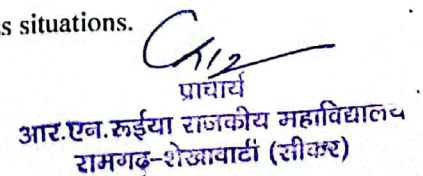 s situations.
प्राचार्य
आर.एन.रूईया राजकीय महाविद्यालय
रामगढ़-शेखावाटी (सीकर)